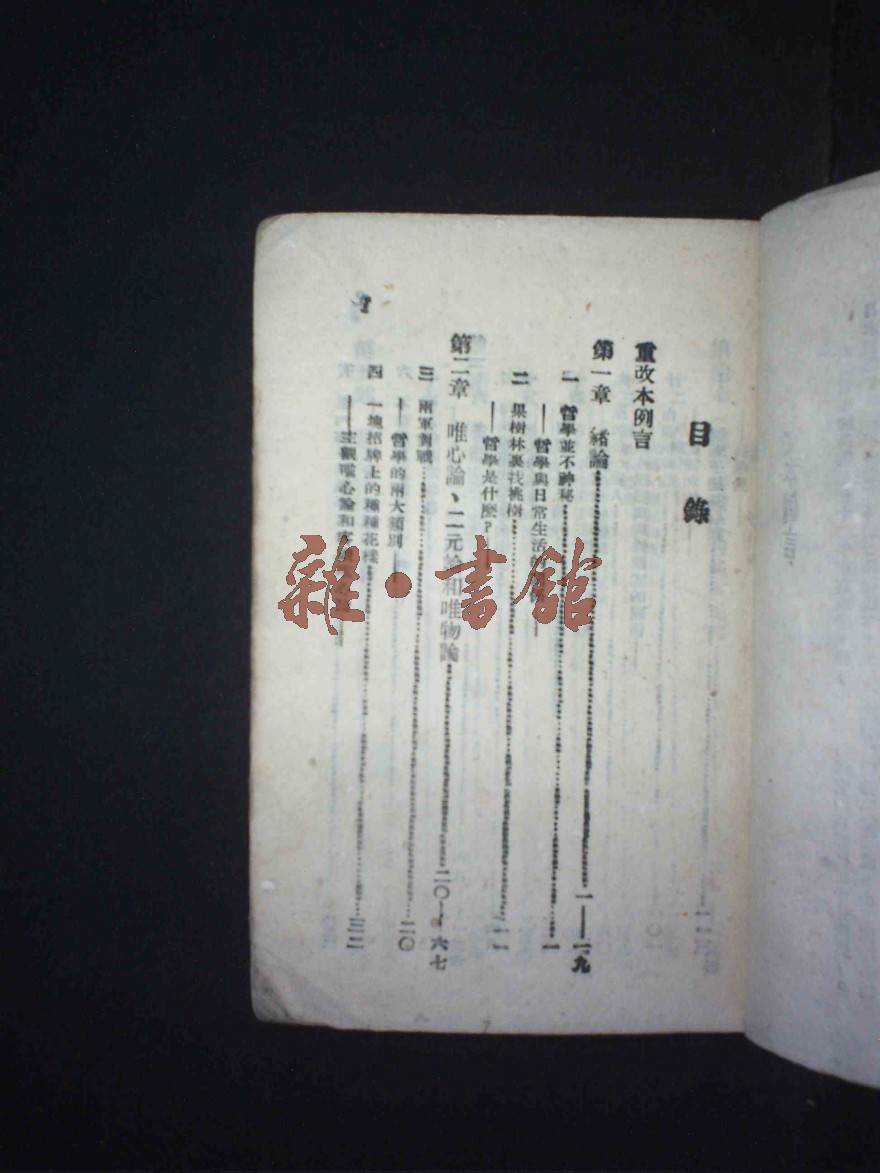 目錄
重改本例言
第一章 緒論……一——一九
一 哲學並不神秘……一
——哲學與日常生活的關係——
二 果樹林裏找桃樹……一一
——哲學是什麼?——
第二章 唯心論、二元論和唯物論……二〇——六七
三 兩軍對戰……二〇
——哲學的兩大類別——
四 一塊招牌上的種種花樣……三二
——主觀唯心論和客
雜·書館